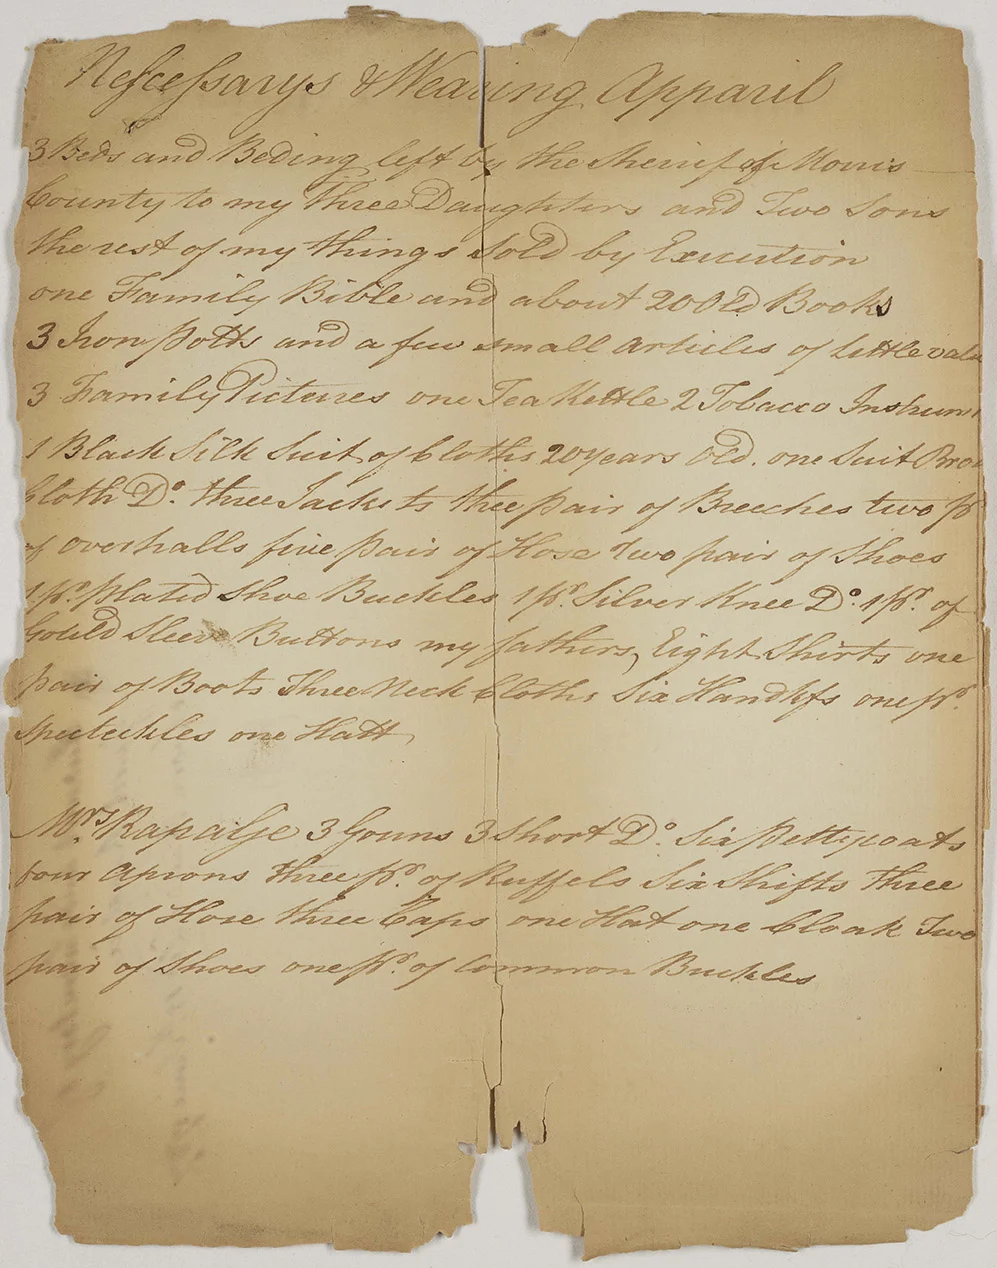 Nescessarys & Wearing Apparil
3 Beds and Beding left by the Sherief of Morris
County to my Three Daughters and Two Sons
the rest of my things Sold by Execution
one Family Bible and about 20 Old Books
3 Iron Potts and a few small articles of Little valu
3 Family Pictures one Tea Kettle 2 Tobacco Instrum
1 Black Silk Suit of Cloths 20 years Old. one Suit Brow
Cloth Do. three Jackets three pair of Breeches two pr
of overhalls five pair of Hose Two pair of Shoes
1 pr. plated Shoe Buckles 1 pr. Silver Knee Do. 1 pr. of
Gould Sleeve Buttons my fathers, Eight Shirts one
pair of Boots Three Neck Cloths Six Handkfs one pr.
Specteckles one Hatt
Mrs. Rapalje 3 Gouns 3 Short Do. Six Pettycoats
four Aprons three pr. of Ruffels Six Shifts Three
pair of Hose three Caps one Hat one Cloak Two
pair of Shoes one pr. of Common Buckles